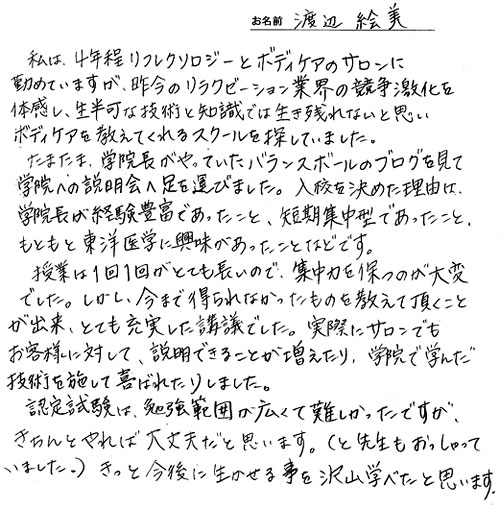 お名前 渡辺 絵美
私は、4年程リフレクソロジーとボディケアのサロンに
勤めていますが、昨今のリラクゼーション業界の競争激化を
体感し、生半可な技術と知識では生き残れないと思い
ボディケアを教えてくれるスクールを探していました。
たまたま、学院長がやっていたバランスボールのブログを見て
学院への説明会へ足を運びました。入校を決めた理由は、
学院長が経験豊富であったこと、短期集中型であったこと、
もともと東洋医学に興味があったことなどです。
授業は1回1回がとても長いので、集中力を保つのが大変
でした。しかし、今まで得られなかったものを教えて頂くこと
が出来、とても充実した講議でした。実際にサロンでも
お客様に対して、説明できることが増えたり、学院で学んだ
技術を施して喜ばれたりしました。
認定試験は、勉強範囲が広くて難しかったですが、
きちんとやれば大丈夫だと思います。(と先生もおっしゃって
いました。)きっと今後に生かせる事を沢山学べたと思います。